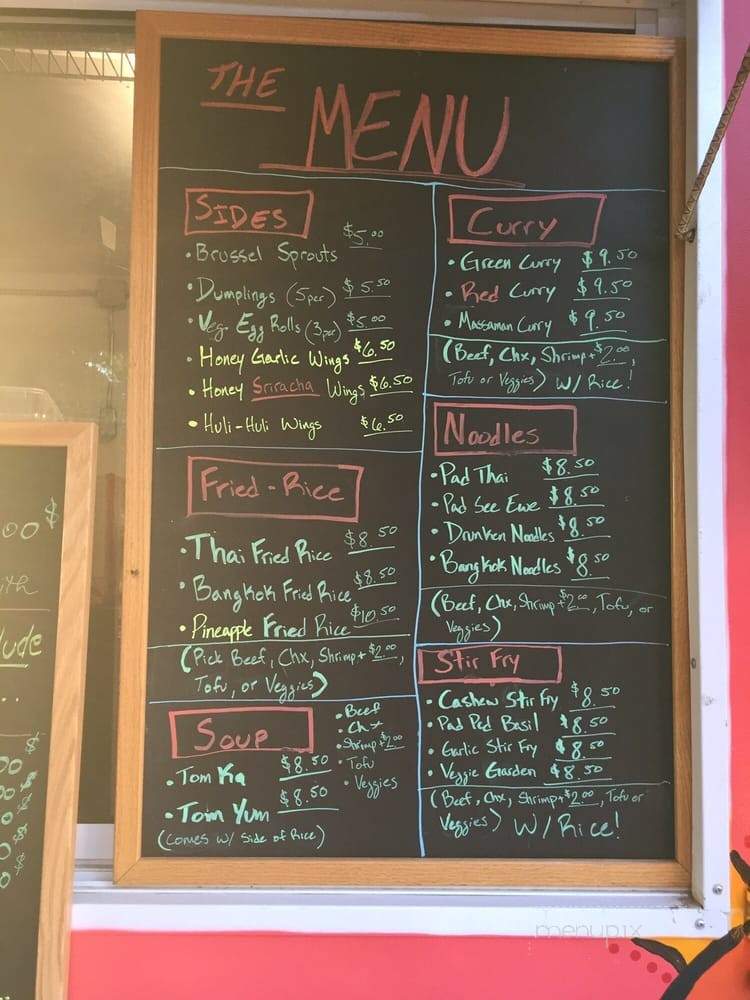 THE
MENU
SIDES
• Brussel Sprouts $5.00
• Dumplings (5per) $5.50
• Veg. Egg Rolls (3per) $5.00
• Honey Garlic Wings $6.50
• Honey Sriracha Wings $6.50
• Huli-Huli Wings $6.50
Fried-Rice
• Thai Fried Rice $8.50
• Bangkok Fried Rice $8.50
• Pineapple Fried Rice $10.50
(Pick Beef, Chx, Shrimp+$2.00,
Tofu, or Veggies)
Soup
• Tom Ka $8.50
• Tom Yum $8.50
(Comes w/ Side of Rice)
• Beef
• Chx
• Shrimp+$2.00
• Tofu
• Veggies
Curry
• Green Curry $9.50
• Red Curry $9.50
• Massaman Curry $9.50
(Beef, Chx, Shrimp+$2.00,
Tofu or Veggies) W/Rice!
Noodles
• Pad Thai $8.50
• Pad See Ewe $8.50
• Drunken Noodles $8.50
• Bangkok Noodles $8.50
(Beef, Chx, Shrimp+$2.00, Tofu, or
Veggies)
Stir Fry
• Cashew Stir Fry $8.50
• Pad Ped Basil $8.50
• Garlic Stir Fry $8.50
• Veggie Garden $8.50
(Beef, Chx, Shrimp+$2.00, Tofu or
Veggies) W/Rice!
menupix